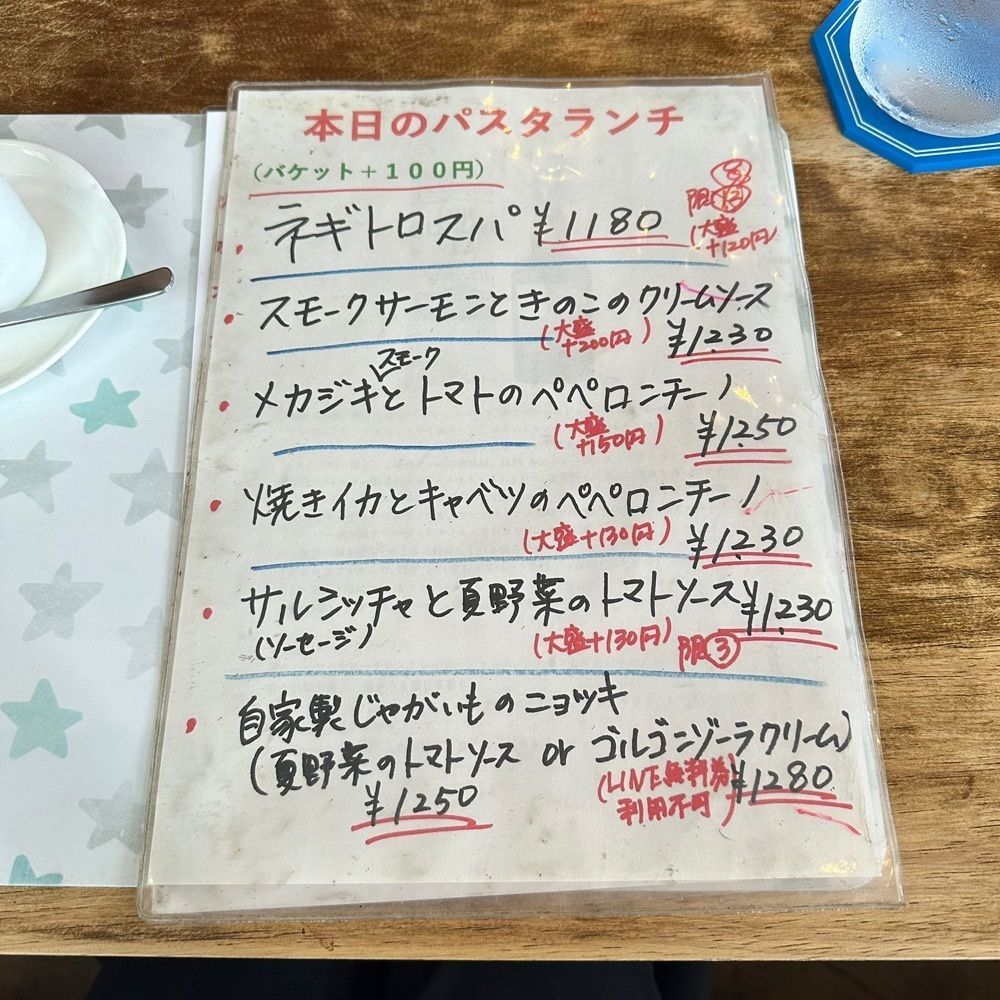 本日のパスタランチ
(バケット+100円)
ネギトロスパ ¥1180
限
(大盛
+120円)
スモークサーモンときのこのクリームソース
(大盛
+200円)
¥1230
スモーク
メカジキとトマトのペペロンチーノ
(大盛
+150円)
¥1250
焼きイカとキャベツのペペロンチーノ
(大盛+130円)
¥1230
サルシッチャと夏野菜のトマトソース ¥1230
(ソーセージ)
(大盛+130円)
限③
自家製じゃがいものニョッキ
(夏野菜のトマトソース or ゴルゴンゾーラクリーム)
¥1250
(LINE無料券
利用不可)
¥1280